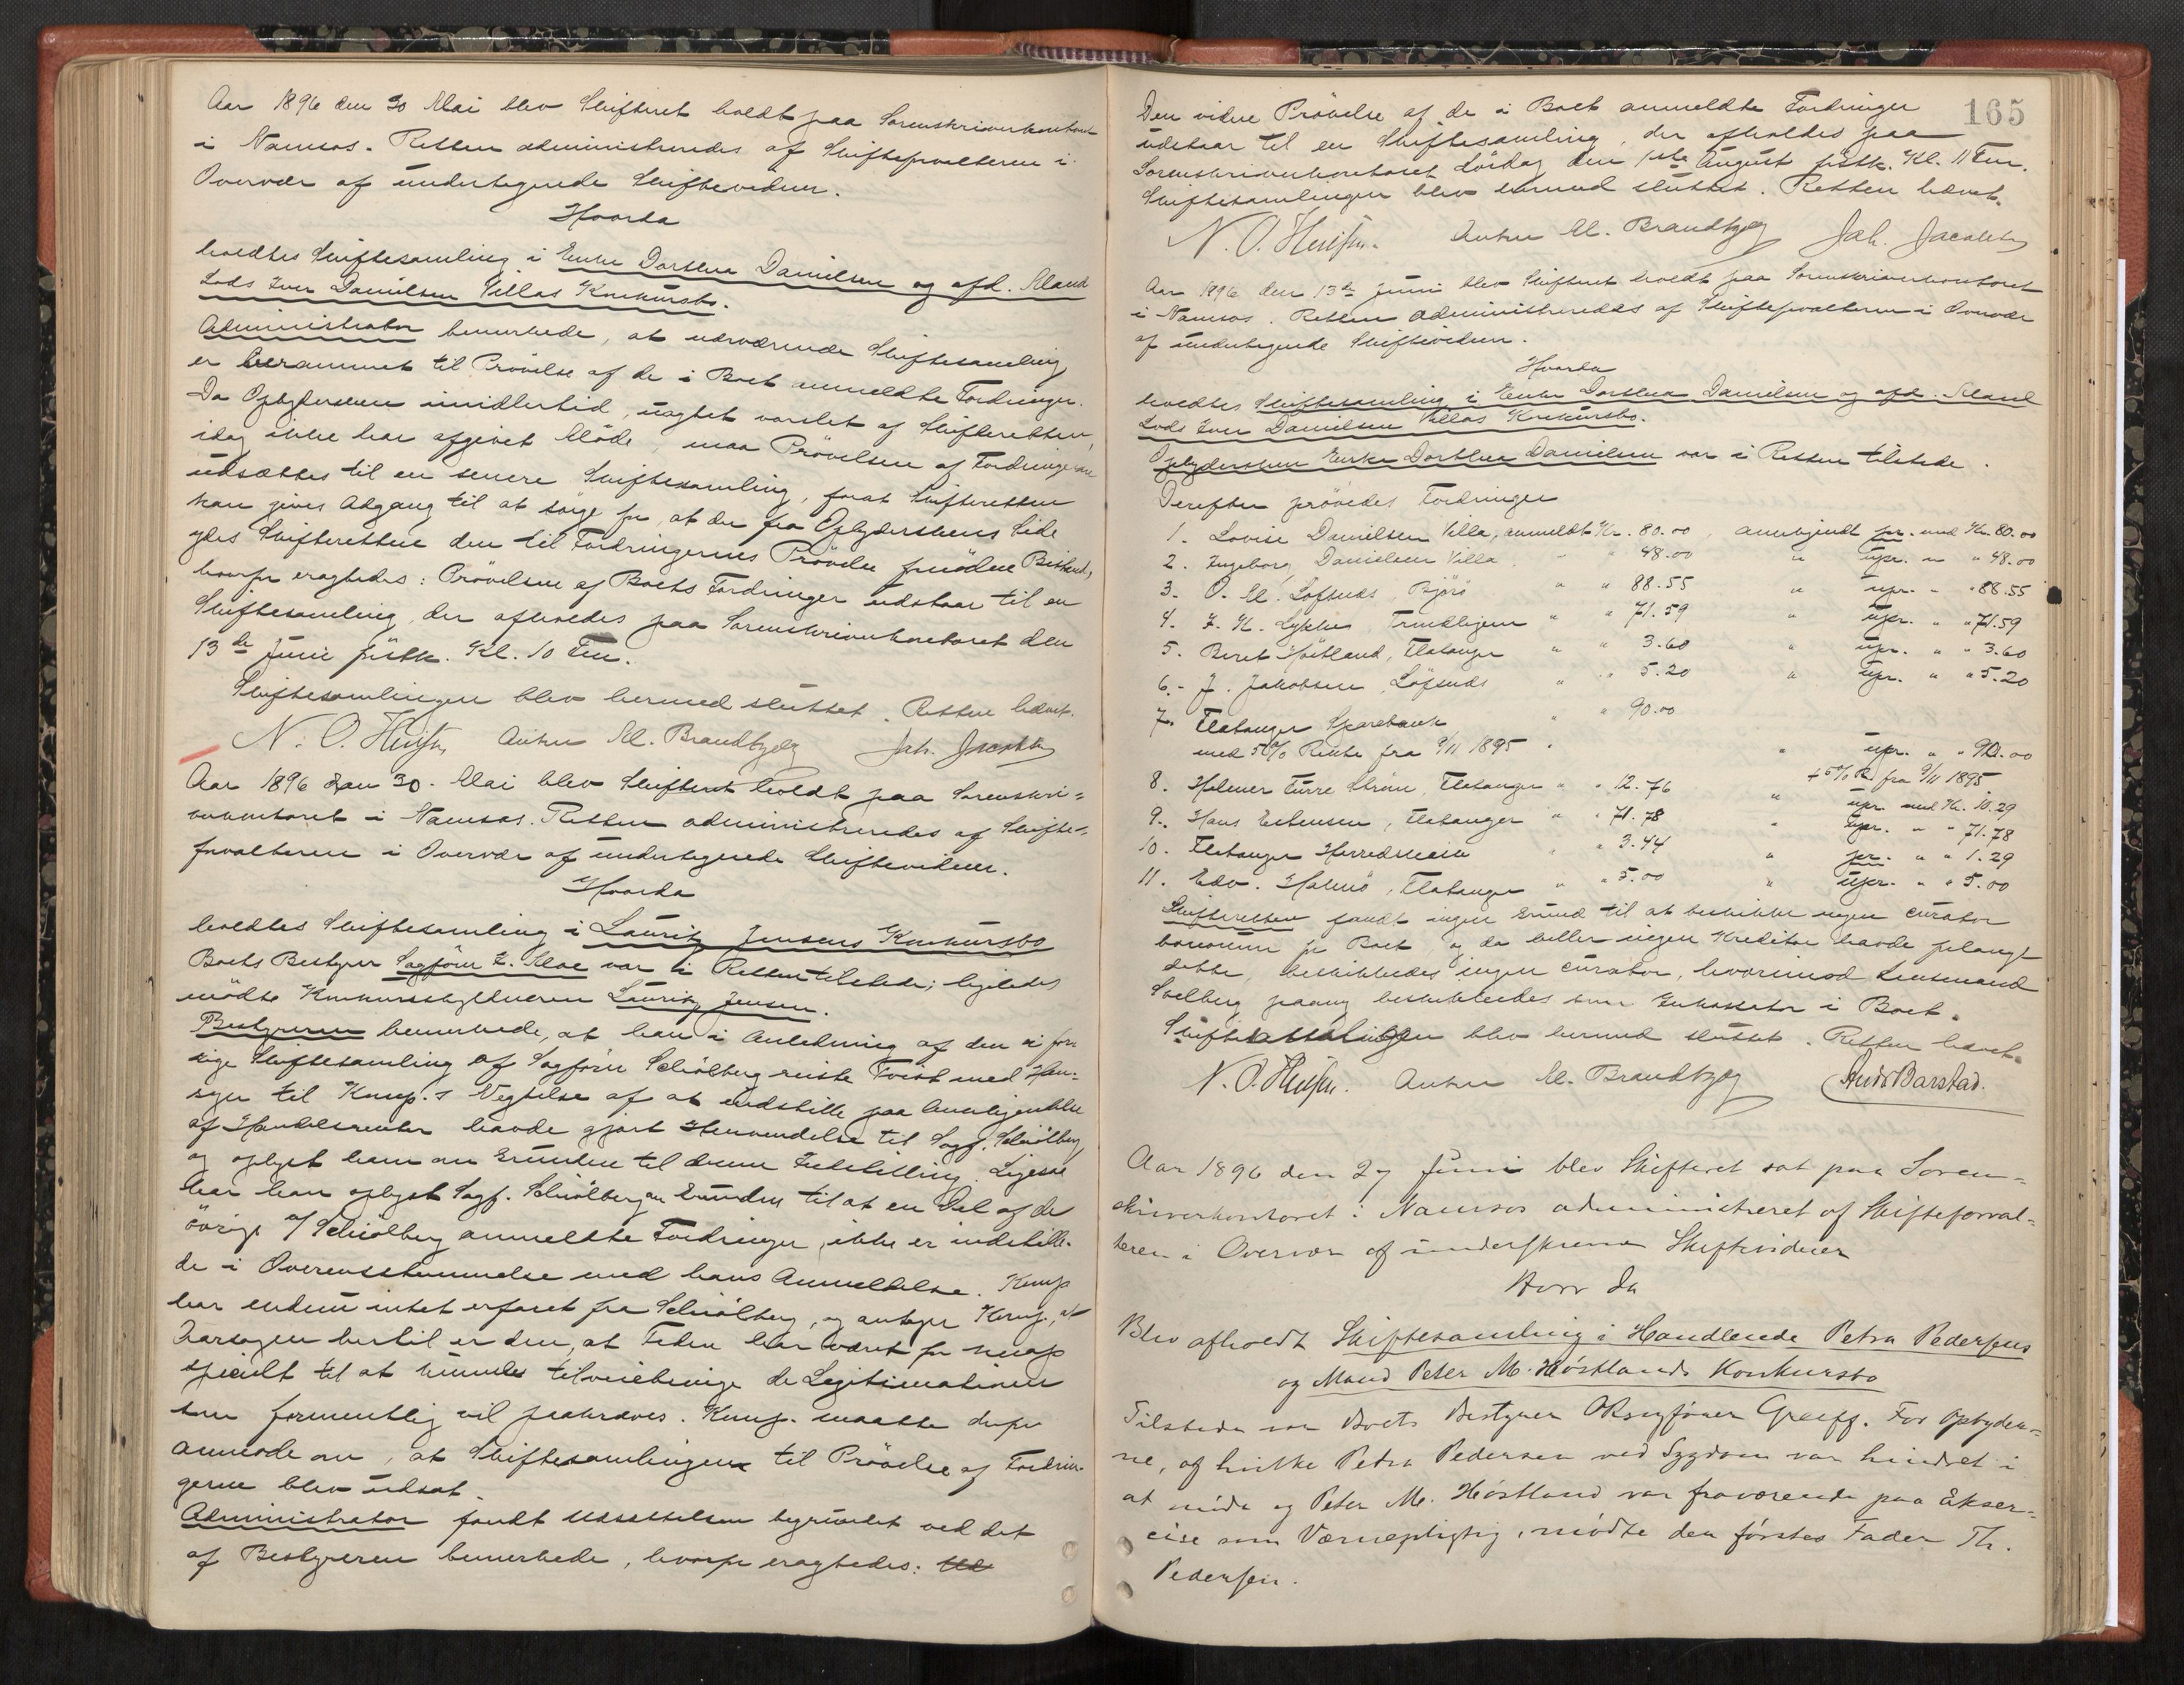 Aar 1896 den 30 Mai blev Skifteret holdt paa Sorenskriverkontoret
i Namsos. Retten administreredes af Skifteforvalteren i
Overvær af undertegnede Skiftevidner.
Hvorda
holdtes Skiftesamling i Enke Dorthea Danielsen og afd. Mand
Lods Iver Danielsen Villas Konkursbo.
Administrator bemerkede, at nærværende Skiftesamling
er berammet til Prövelse af de i Boet anmeldte Fordringer.
Da Opbydersken imidlertid, uagtet varslet af Skifteretten,
idag ikke har afgivet Möde, maa Prövelsen af Fordringerne
udsættes til en senere Skiftesamling, forat Skifteretten
kan gives Adgang til at sörge for, at der fra Opbyderskens Side
ydes Skifteretten den til Fordringernes Prövelse fornödne Bistand,
hvorfor eragtedes: Prövelsen af Boets Fordringer udstaar til en
Skiftesamling, der afholdes paa Sorenskriverkontoret den
13de Juni förstk. Kl. 10 Fm.
Skiftesamlingen blev hermed sluttet. Retten hævet.
N. O. Anton M. Brandtzæg Joh. Jacobsen
Aar 1896 den 30. Mai blev Skifteret holdt paa Sorenskri-
verkontoret i Namsos. Retten administreredes af Skifte-
forvalteren i Overvær af undertegnede Skiftevidner.
Hvorda
holdtes Skiftesamling i Lauritz Jensens Konkursbo
Boets Bestyrer Sagförer E. Moe var i Retten tilstede; ligeledes
mödte Konkursskyldneren Lauritz Jensen.
Bestyreren bemerkede, at han i Anledning af den i for-
rige Skiftesamling af Sagförer Schiölberg reiste Tvist med Hen-
syn til Komp.s Vegtelse af at indstille paa Anerkjendelse
af Handelsrenter havde gjort Henvendelse til Sagf. Schiölberg
og oplyst ham om Grunden til denne Indstilling. Ligesaa
har han oplyst Sagf. Schiölberg om Grunden til at en Del af de
övrige af Schiölberg anmeldte Fordringer, ikke er indstille-
de i Overensstemmelse med hans Anmeldelse. Komp
har endnu intet erfaret fra Schiölberg, og antager Komp., at
Aarsagen hertil er den, at Tiden har været for knap
specielt til at kunne tilveiebringe de Legitimationer
som formentlig vil paakræves. Komp. maatte derfor
anmode om, at Skiftesamlingen til Prövelse af Fordrin-
gerne blev udsat.
Administrator fandt Udsættelsen begrundet ved det
af Bestyreren bemerkede, hvorfor eragtedes:
165
Den videre Prövelse af de i Boet anmeldte Fordringer
udstaar til en Skiftesamling, der afholdes paa
Sorenskriverkontoret Lördag den 1ste August förstk. Kl. 11 Fm.
Skiftesamlingen blev hermed sluttet. Retten hævet.
N. O. Anton M. Brandtzæg Joh. Jacobsen
Aar 1896 den 13de Juni blev Skifteret holdt paa Sorenskriverkontoret
i Namsos. Retten administreredes af Skifteforvalteren i Overvær
af undertegnede Skiftevidner.
Hvorda
holdtes Skiftesamling i Enke Dorthea Danielsen og afd. Mand
Lods Iver Danielsen Villas Konkursbo.
Opbydersken Enke Dorthea Danielsen var i Retten tilstede.
Derefter prövedes Fordringer
1. Lovise Danielsen Villa, anmeldt Kr. 80.00, anerkjendt pr. med Kr. 80.00
2. Ingeborg Danielsen Villa " " 48.00 " upr. " " 48.00
3. O. M. Löfsnes, Björö " " 88.55 " upr. " " 88.55
4. F. K. Lykke, Trondhjem " " 71.59 " upr. " " 71.59
5. Beret Hövland, Flatanger " " 3.60 " upr. " " 3.60
6. J. Jakobsen, Löfsnes " " 5.20 " upr. " " 5.20
7. Flatanger Sparebank " " 90.00
med 5% Rente fra 9/11 1895 " " upr. " " 90.00
+ 5% R. fra 9/11 1895
8. Holmer Strøm, Flatanger " " 12.76 " upr. med Kr. 10.29
9. Hans Estensen, Flatanger " " 71.78 " upr. " " 71.78
10. Flatanger Herredskasse " " 3.44 " pr. " " 1.29
11. Edv. Holmö, Flatanger " " 5.00 " upr. " " 5.00
Skifteretten fandt ingen Grund til at beskikke nogen curator
bonorum for Boet, og da heller ingen Kreditor havde forlangt
dette, beskikkedes ingen curator, hvorimod Lensmand
Solberg paany beskikkedes som Inkassator i Boet.
Skiftesamlingen blev hermed sluttet. Retten hævet.
N. O. Anton M. Brandtzæg And. Barstad.
Aar 1896 den 27 Juni blev Skifteret sat paa Soren-
skriverkontoret i Namsos administreret af Skifteforval-
teren i Overvær af underskrevne Skiftevidner
Hvor da
Blev afholdt Skiftesamling i Handlende Petra Pedersens
og Mand Peter M. Höstlands Konkursbo
Tilstede var Boets Bestyrer ORsagförer Greiff. For Opbyder-
ne, af hvilke Petra Pedersen ved Sygdom var hindret i
at möde og Peter M. Höstland var fraværende paa Ekser-
cise som Værnepligtig, mödte den förstes Fader Th.
Pedersen.